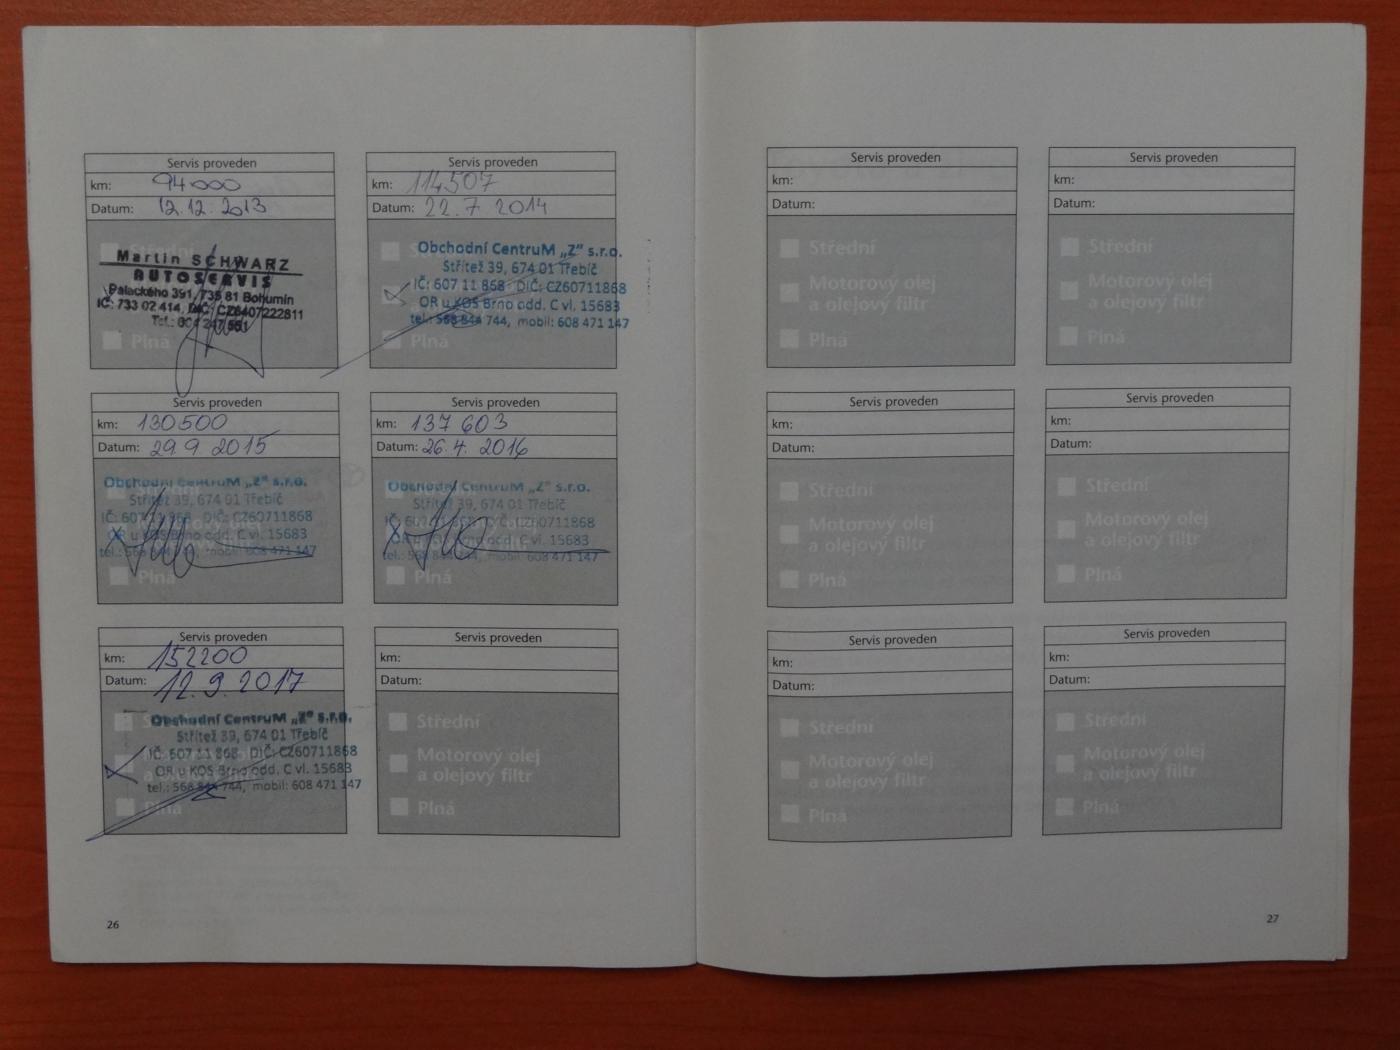 Servis proveden
km: 94000
Datum: 12.12.2013
Střední
Martin SCHWARZ
AUTOSERVIS
Palackého 391, 735 81 Bohumín
IČ: 733 02 414, DIČ: CZ6407222811
Tel.: 604 247 551
Plná
Servis proveden
km: 114507
Datum: 22.7 2014
Obchodní CentruM „Z" s.r.o.
Střítež 39, 674 01 Třebíč
IČ: 607 11 868 DIČ: CZ60711868
OR u KOS Brno odd. C vl. 15683
tel.: 568 844 744, mobil: 608 471 147
Plná
Servis proveden
km: 130500
Datum: 29.9 2015
Obchodní CentruM „Z" s.r.o.
Střítež 39, 674 01 Třebíč
IČ: 607 11 868 DIČ: CZ60711868
OR u KOS Brno odd. C vl. 15683
tel.: 568 844 744, mobil: 608 471 147
Plná
Servis proveden
km: 137 603
Datum: 26.4. 2016
Obchodní CentruM „Z" s.r.o.
Střítež 39, 674 01 Třebíč
IČ: 607 11 868 DIČ: CZ60711868
OR u KOS Brno odd. C vl. 15683
tel.: 568 844 744, mobil: 608 471 147
Plná
Servis proveden
km: 152200
Datum: 12.9.2017
Obchodní CentruM „Z" s.r.o.
Střítež 39, 674 01 Třebíč
IČ: 607 11 868 DIČ: CZ60711868
OR u KOS Brno odd. C vl. 15683
tel.: 568 844 744, mobil: 608 471 147
Plná
Servis proveden
km:
Datum:
Střední
Motorový olej
a olejový filtr
Plná
26
Servis proveden
km:
Datum:
Střední
Motorový olej
a olejový filtr
Plná
Servis proveden
km:
Datum:
Střední
Motorový olej
a olejový filtr
Plná
Servis proveden
km:
Datum:
Střední
Motorový olej
a olejový filtr
Plná
Servis proveden
km:
Datum:
Střední
Motorový olej
a olejový filtr
Plná
Servis proveden
km:
Datum:
Střední
Motorový olej
a olejový filtr
Plná
Servis proveden
km:
Datum:
Střední
Motorový olej
a olejový filtr
Plná
27